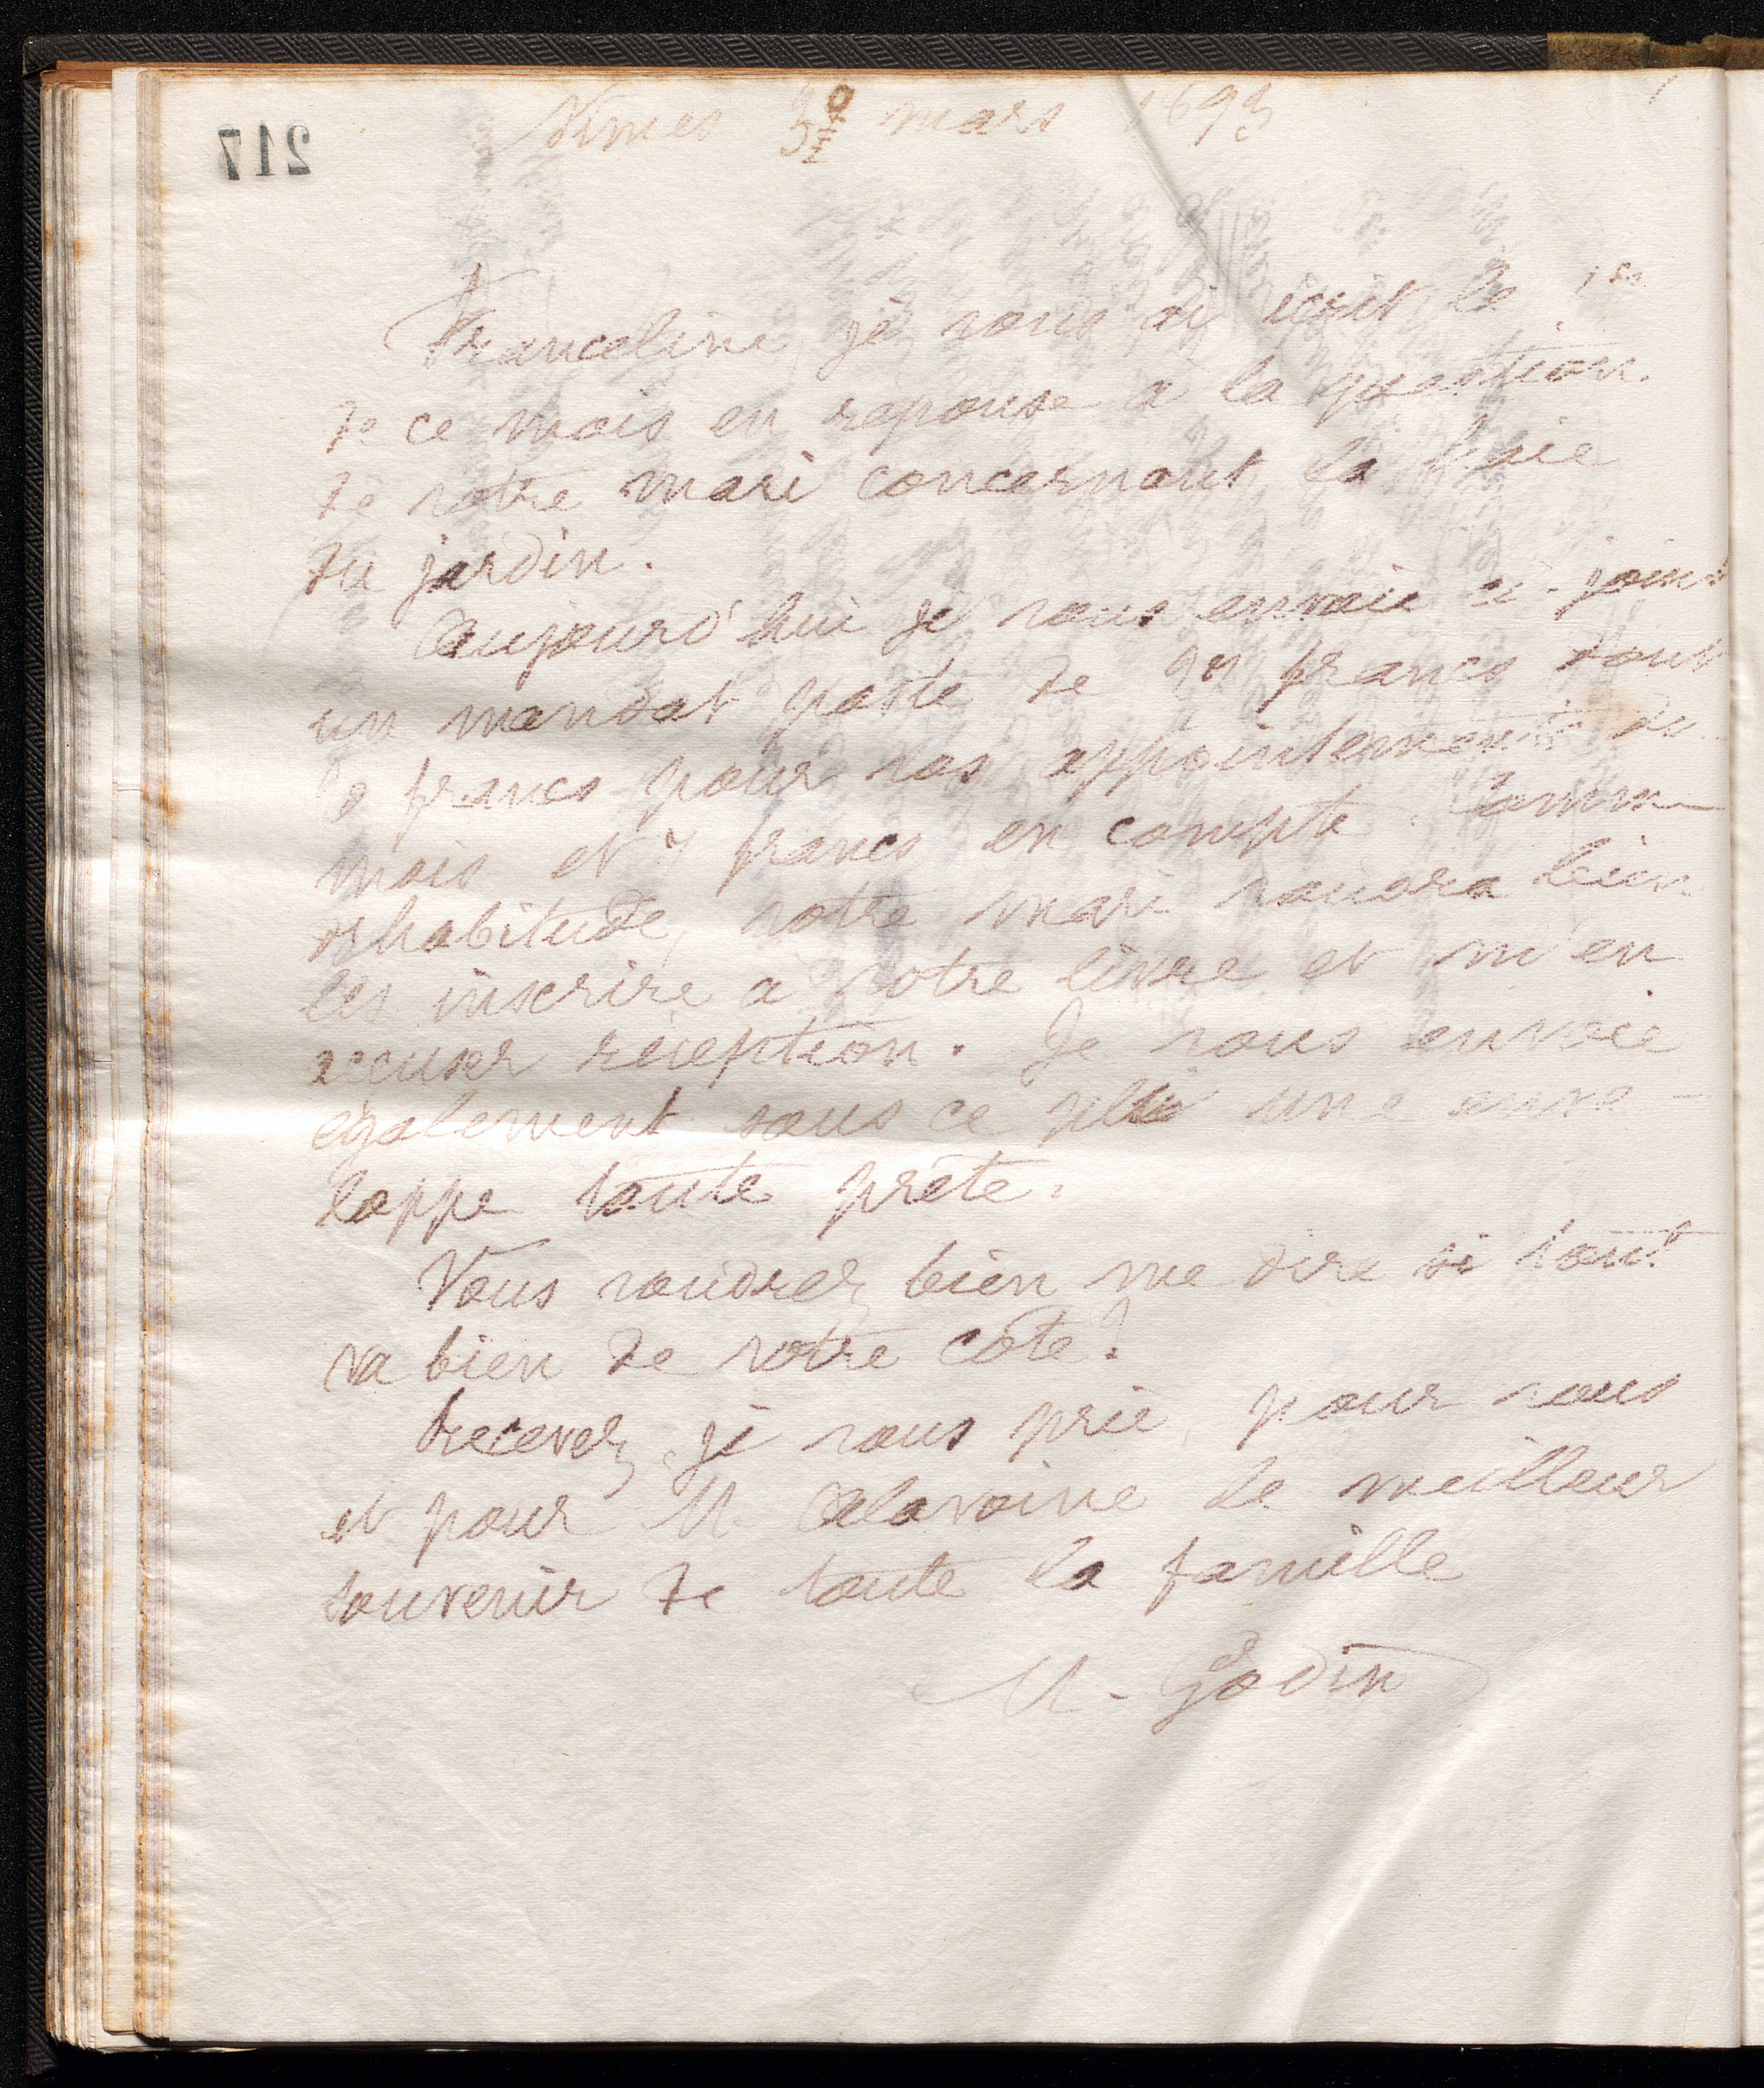 217
Nîmes 30 mars 1893
Franceline, je vous ai écrit le 1er
de ce mois en réponse à la question
de votre mari concernant la haie
du jardin.
Aujourd'hui je vous envoie ci-joint
un mandat poste de francs dont
francs pour vos appointements du
mois et 7 francs en compte. Comme
d'habitude, votre mari voudra bien
les inscrire à votre livre et m'en
accuser réception. Je vous envoie
également sous ce pli une enve-
loppe toute prête.
Vous voudrez bien me dire si tout
va bien de votre côté?
Recevez, je vous prie, pour vous
et pour M. Alavoine le meilleur
souvenir de toute la famille
M. Godin